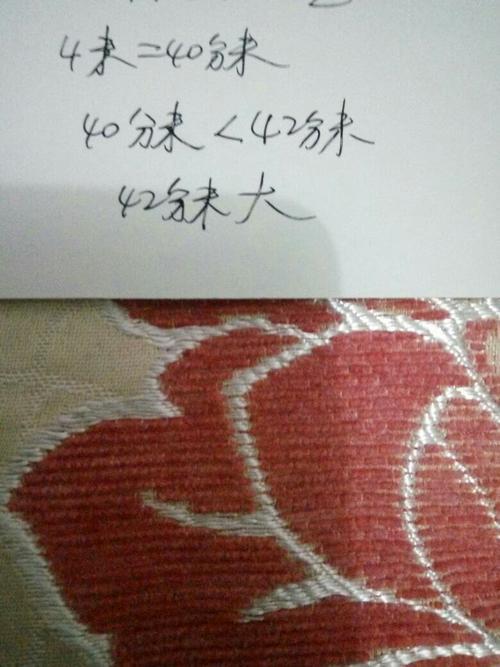 4米=40分米
40分米<42分米
42分米大